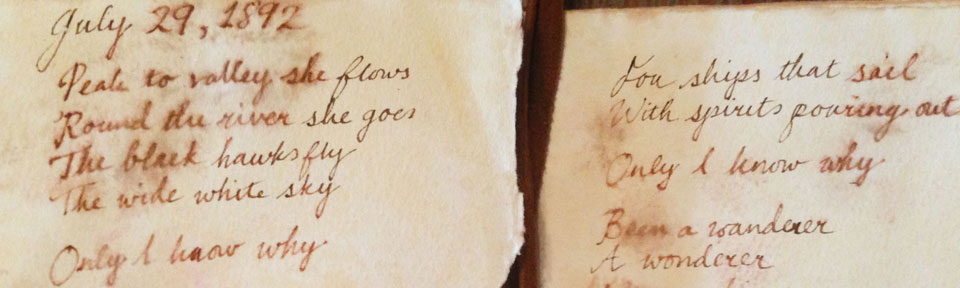 July 29, 1892
Peak to valley she flows
'Round the river she goes
The black hawks fly
The wide white sky
Only I know why
You ships that sail
With spirits pouring out
Only I know why
Been a wanderer
A wonderer